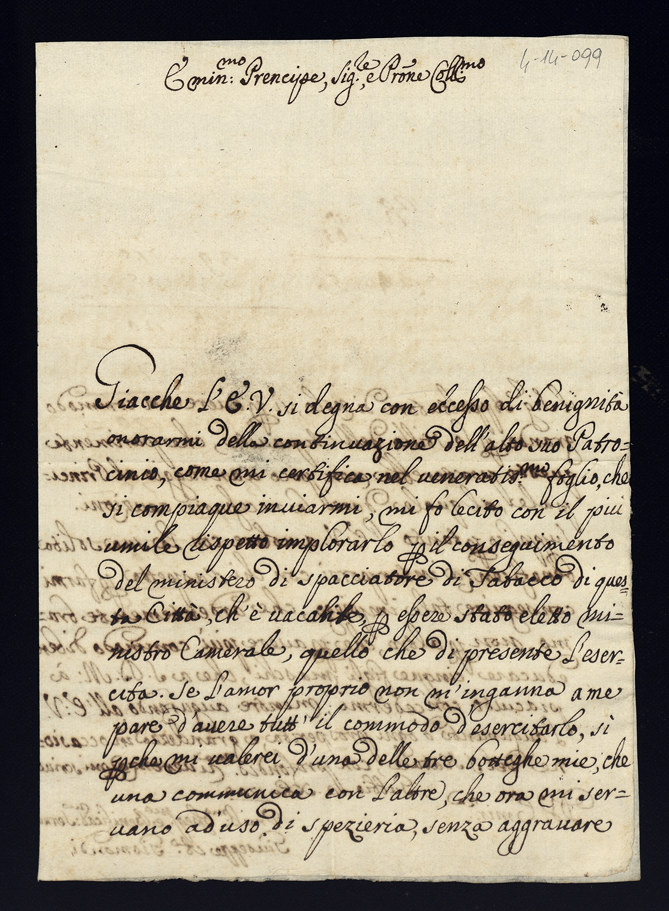 4-14-099
Emin:mo Prencipe, Sig:re, e Prõne Coll:mo
Giacche L'E. V. si degna con eccesso di benignità
onorarmi della continuazione dell'alto suo Patro=
cinio, come mi certifica nel veneratis:mo foglio, che
si compiaque inviarmi, mi fo lecito con il più
umile rispetto implorarlo p il conseguimento
del ministero di spacciatore di Tabacco di ques=
ta Città, ch'è vacante, p essere stato eletto mi=
nistro Camerale, quello che di presente l'eser=
cita. Se L'amor proprio non m'inganna a me
pare d'avere tutt' il commodo d'esercitarlo, sì
pche mi valerei d'una delle tre botteghe mie, che
una communica con L'altre, che ora mi ser=
vano ad'uso di spezieria, senza aggravare